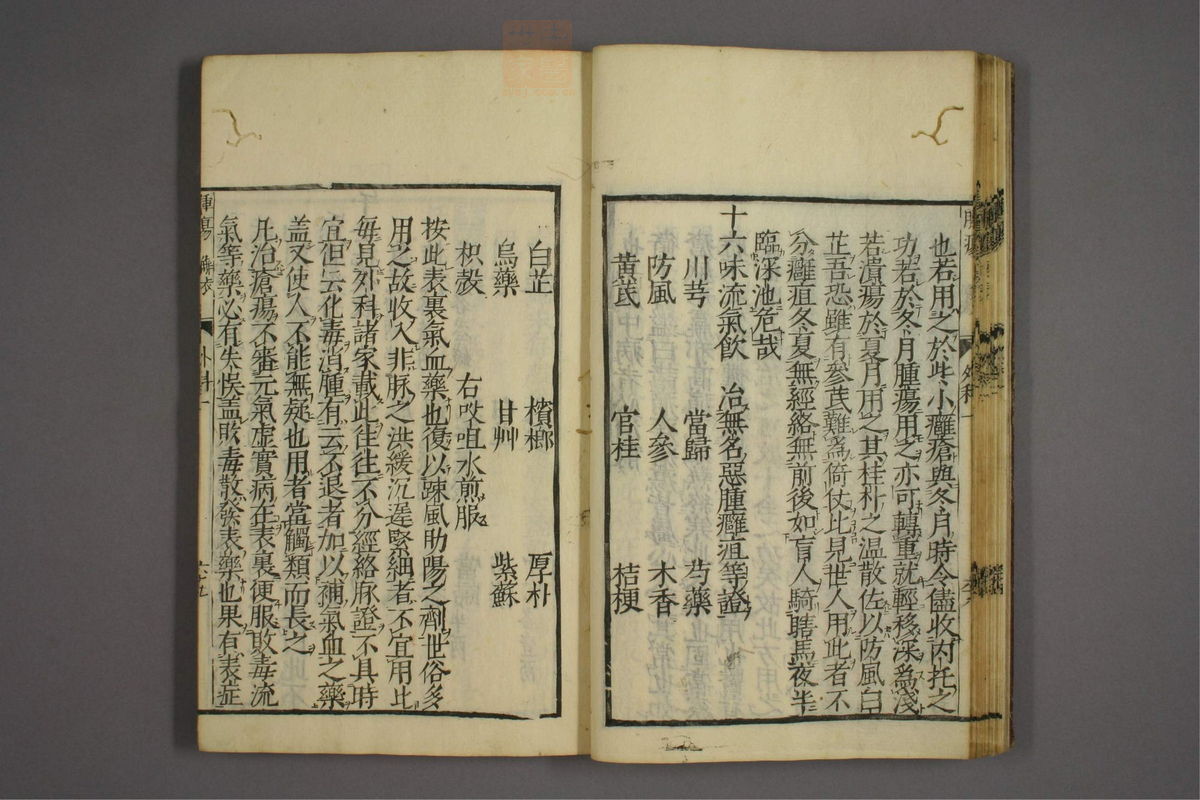 也若用之於些小癰瘡與冬月時令儘收内托之
功若於冬月腫瘍用之亦可轉重就輕移深為淺
若潰瘍於夏月用之其桂朴之温散佐以防風白
芷吾恐雖有參芪難為倚仗比見世人用此者不
分癰疽冬夏無經絡無前後如盲人騎瞎馬夜半
臨深池危哉
十六味流氣飲 治無名惡腫癰疽等證
川芎 當歸 芍藥
防風 人參 木香
黃芪 官桂 桔梗
白芷 檳榔 厚朴
烏藥 甘艸 紫蘇
枳殼 右㕮咀水煎服
按此表裏氣血藥也復以踈風助陽之劑世俗多
用之故收入非脉之洪緩沉遲緊細者不宜用此
每見外科諸家載此往往不分經絡脉證不具時
宜但云化毒消腫有云不退者加以補氣血之藥
盖又使人不能無疑也用者當觸類而長之
凡治瘡瘍不審元氣虛實病在表裏便服敗毒流
氣等藥必有失悞盖敗毒散發表藥也果有表症
外科一